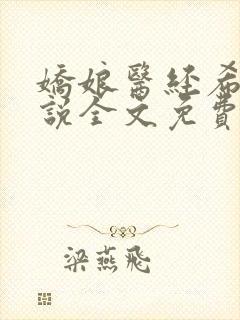 嬌娘醫經希
說全文免費
梁燕飛